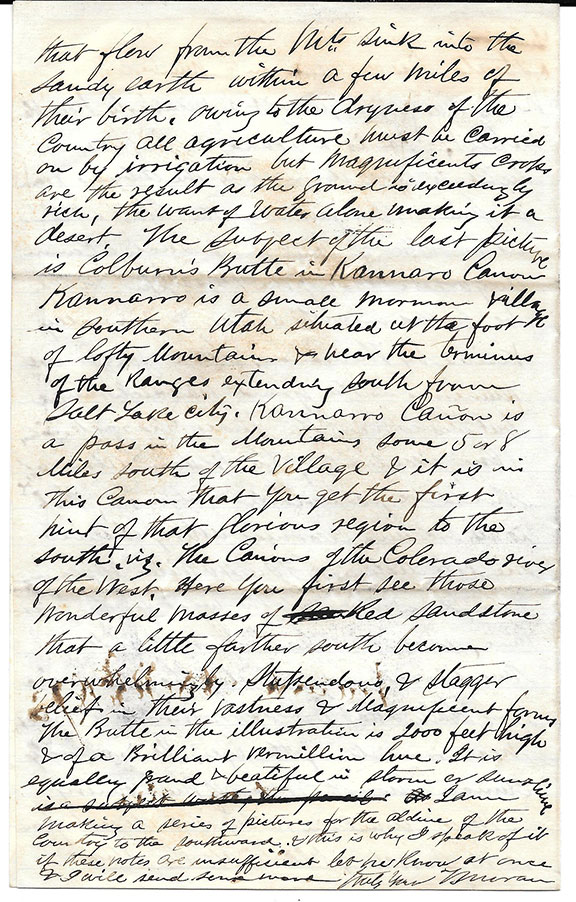 that flow from the Mts sink into the
sandy earth within a few miles of
their birth. owing to the dryness of the
Country all agriculture must be carried
on by irrigation but Magnificents crops
are the result as the ground is exceedingly
rich, the want of water alone making it a
desert. The subject of the last picture
is Colburn's Butte in Kannaro Canon
Kannarro is a small mormon village
in southern Utah situated at the foot
of lofty Mountains & near the terminus
of the Ranges extending south from
Salt Lake city. Kannarro Cañon is
a pass in the Mountains some 5 or 8
Miles south of the Village & it is in
this Canon that you get the first
hint of that glorious region to the
south, viz. The Cañons of the Colorado river
of the West. Here you first see those
Wonderful masses of Red sandstone
that a little farther south become
overwhelmingly stupendous, & stagger
belief in their vastness & Magnificent forms
The Butte in the illustration is 2000 feet high
& of a Brilliant Vermillion hue. It is
equally grand & beatiful in storm or sunshine
is a subject worthy the pencil. I am
making a series of pictures for the aldine of the
Country to the southward & this is why I speak of it
if these notes are insufficient let me know at once
& I will send some more truly yours TMoran